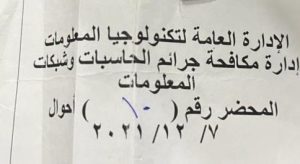 الإدارة العامة لتكنولوجيا المعلومات
إدارة مكافحة جرائم الحاسبات وشبكات
المعلومات
المحضر رقم ( ١٠ ) أحوال
٧/ ١٢/ ٢٠٢١